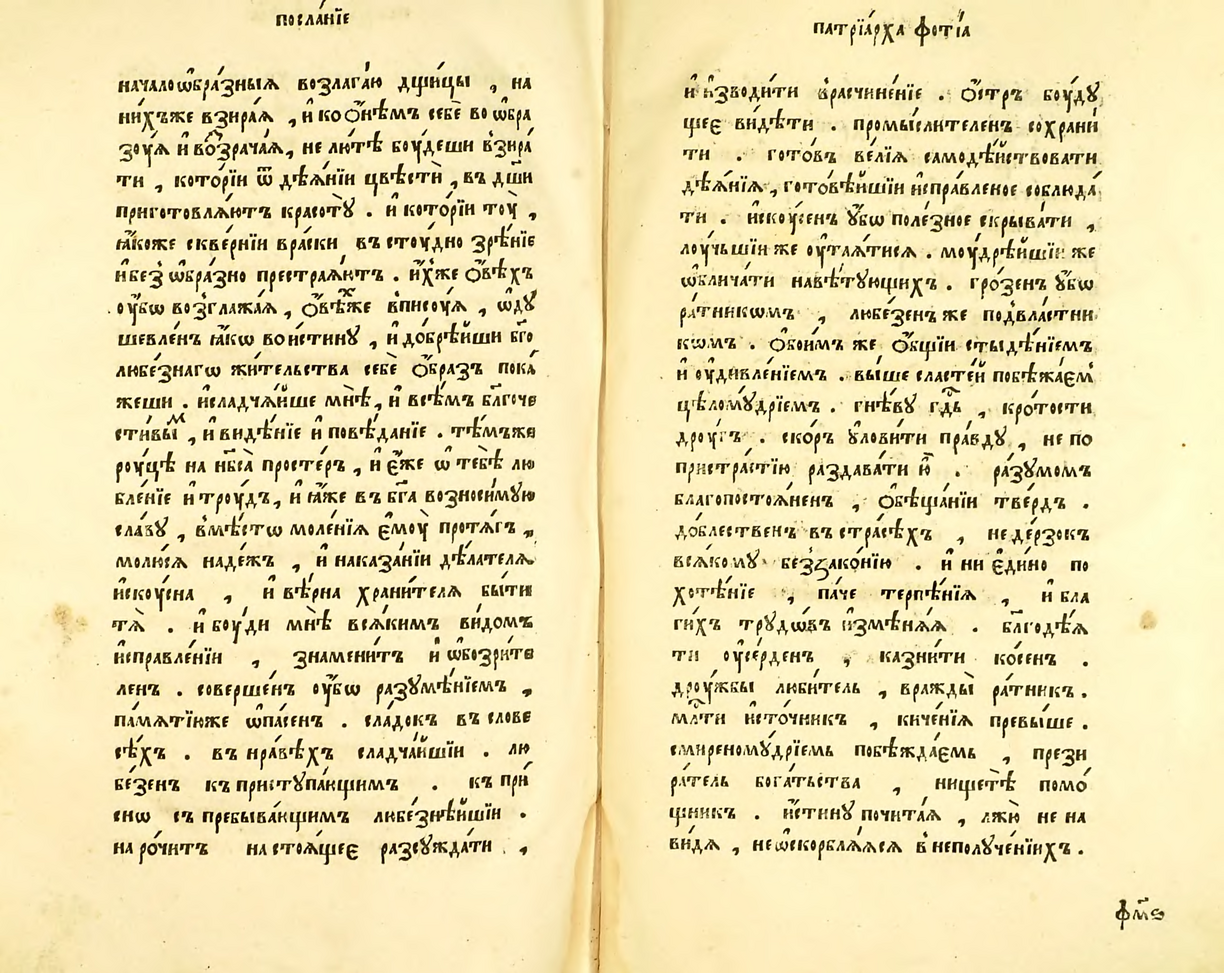 посла́нїе
началоѡбра́зныѧ возлага́ю дщи́цы , на
ни́хъже взира́ѧ , и҆ ко ѻ҆́нѣмъ себѐ во ѡ҆бра
зꙋ́ѧ и҆ во́зрачаѧ , не лю́тѣ бꙋ́деши взира́
ти , кото́рїи ѿ дѣѧ́нїи цвѣстѝ , въ дш҃и
приготовлѧ́ютъ красотꙋ̀ . и҆ кото́рїи тоу̀ ,
ꙗ҆́коже скве́рнїи вра́ски въ стоу́дно зрѣ́нїе
и҆ без̾ ѡ҆бра́зно престраѧ́ютъ . и҆́хже ѻ҆́вѣхъ
оу҆́бѡ возглажа́ѧ , ѻ҆́вѣхже впису́ѧ , ѡ҆дꙋ
шевле́нъ ꙗ҆́кѡ вои́стинꙋ , и҆ добрѣ́йши бг҃о
любе́знагѡ жи́тельства себѐ ѻ҆́бразъ пока́
жеши . и҆ сладча́йше мнѣ̀ , и҆ всѣ́мъ благоче
сти́вым , и҆ ви́дѣнїе и҆ повѣ́данїе . тѣ́мъже
роу́цѣ на нб҃са̀ просте́ръ , и҆ є҆́же ѡ҆ тебѣ̀ лю
бле́нїе и҆ троу́дъ , и҆ ꙗ҆́же въ бг҃а возноси́мꙋю
сла́вꙋ , вмѣ́стѡ моле́нїѧ є҆моу̀ протѧ́гъ ,
молю́сѧ наде́жъ , и҆ наказа́нїи дѣ́лателѧ
и҆скоу́сна , и҆ вѣ́рна храни́телѧ бы́ти
тѧ̀ . и҆ боу́ди мнѣ̀ всѧ́кимъ ви́домъ
и҆справле́нїи , знамени́тъ и҆ ѡ҆бозри́те
ленъ . соверше́нъ оу҆́бѡ разꙋмѣ́нїемъ ,
па́мѧтїюже ѡ҆па́сенъ . сла́докъ въ слове
сѣ́хъ . въ нра́вѣхъ сладча́йшїи . лю
бе́зенъ къ пристꙋпа́ющимъ . къ при́
снѡ съ пребыва́ющимъ любе́знѣйшїи .
наро́читъ настоѧ́щеє разсꙋжда́ти ,
патрїа́рха фо́тїа
и҆ и҆зводи́ти врасчине́нїе . ѻ҆́стръ боу́дꙋ
щеє ви́дѣти . промы́слителенъ сохрани́
ти . гото́въ ве́лїѧ самодѣ́йствовати
дѣѧ́нїѧ , гото́вѣйшїи и҆спра́вленое соблюда́
ти . и҆скоу́сенъ ꙋ҆́бѡ поле́зное скрыва́ти ,
лоу́чьшїи же оу҆таѧ́тисѧ . моудрѣ́йшїи же
ѡ҆блича́ти навѣ́тꙋющихъ . гро́зенъ ꙋ҆́бѡ
ра́тникѡмъ , любе́зенъ же подвла́стни
кѡмъ . ѻ҆бои́мъ же ѻ҆́бщїи стыдѣ́нїемъ
и҆ оу҆дивле́нїемъ . вы́ше страсте́й побѣжа́єм
цѣломꙋ́дрїемъ . гнѣ́вꙋ гд҃ь , кро́тости
дроу́гъ . ско́ръ ꙋ҆лови́ти пра́вдꙋ , не по
пристра́стїю раздава́ти ю҆̀ . ра́зꙋмомъ
благопосто́ѧненъ , ѻ҆бѣща́нїи тве́рдъ .
до́блественъ въ стра́сѣхъ , не де́рзокъ
всѧ́комꙋ беззако́нїю . и҆ ни є҆ди́но по
хотѣ́нїе , па́че терпѣ́нїѧ , и҆ бла
ги́хъ трꙋдѡ́въ и҆змѣнѧ́ѧ . благодѣ́ѧ
ти оу҆се́рденъ , казни́ти ко́сенъ .
дроу́жбы люби́тель , вражды̀ ра́тник .
мл҃ти и҆сто́чникъ , киче́нїѧ превы́ше .
смиреномꙋ́дрїемь побѣжда́ємь , прези
ра́тель бога́тьства , нищетѣ̀ помо́
щникъ . и҆́стинꙋ почита́ѧ , лжю̀ не на
ви́дѧ , не ѡ҆скорблѧ́ѧсѧ в неполꙋче́нїихъ .
фм҃ѕ